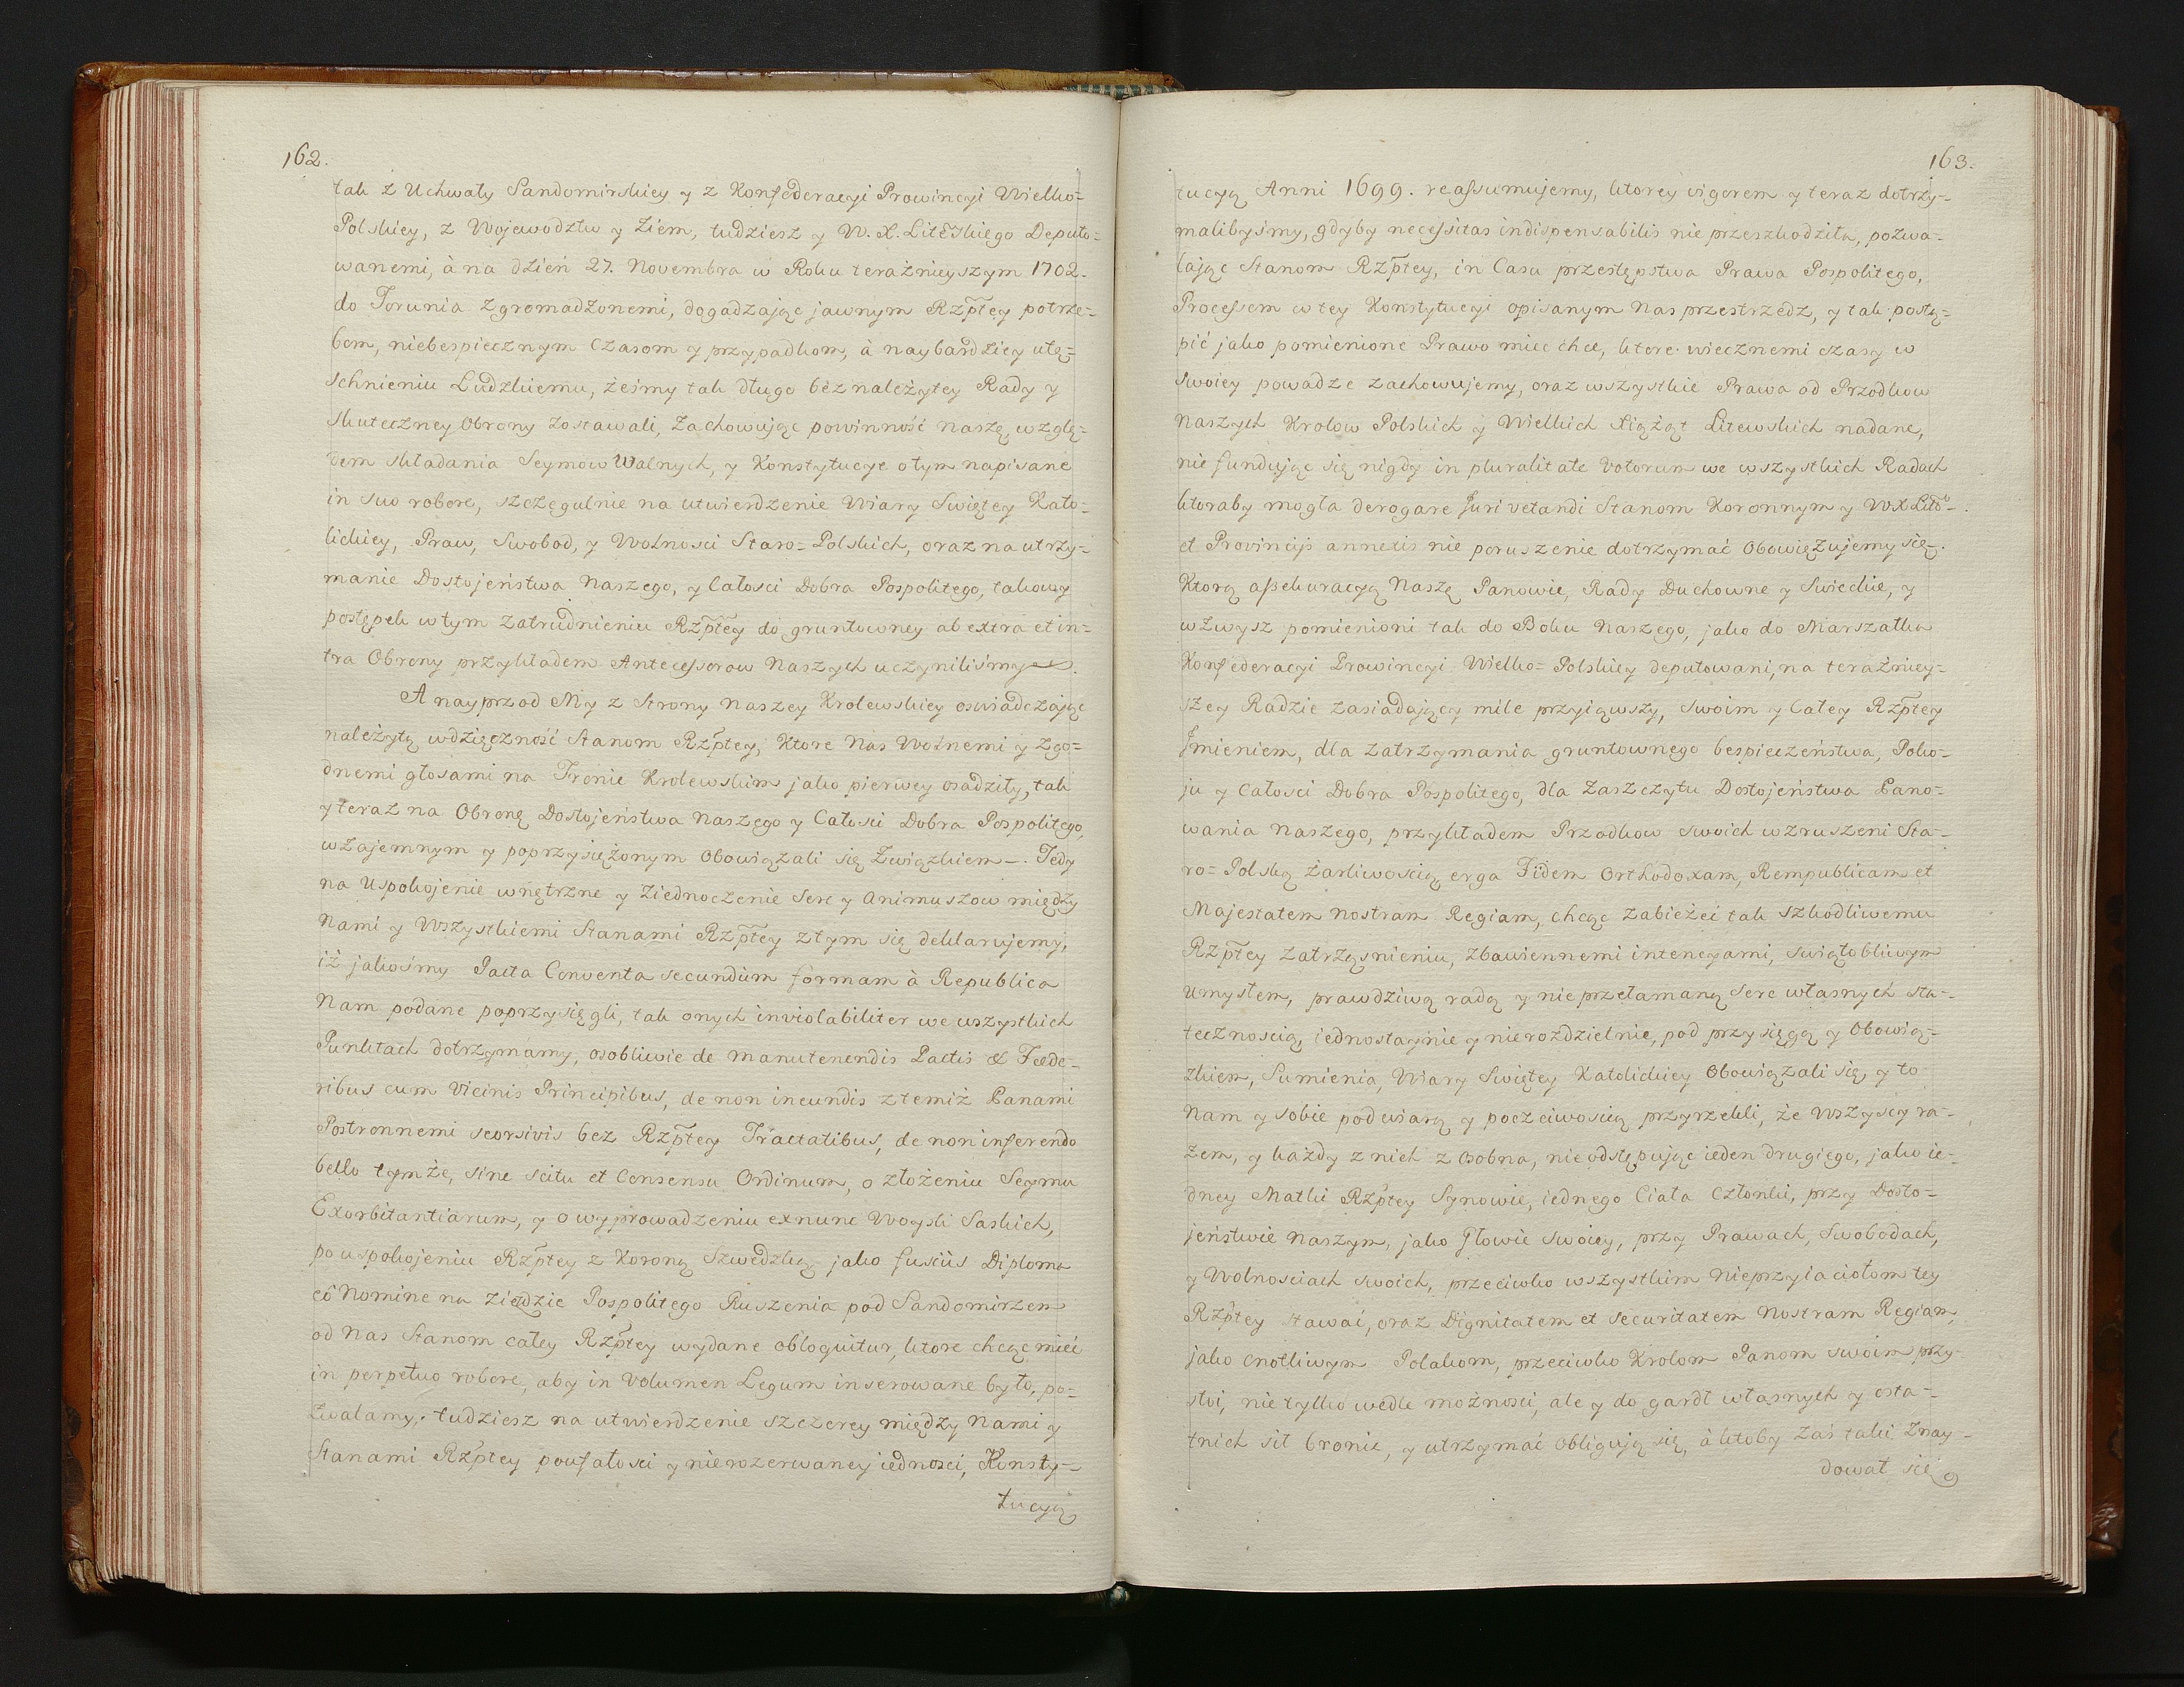 162.
tak z Uchwały Sandomirskiey y z Konfederacyi Prowincyi Wielko=
Polskiey, z Wojewodztw y Ziem, tudziesz y W. X. Litẽskiego Deputo=
wanemi, à na dzień 27. Novembra w Roku teraźnieyszym 1702.
do Torunia zgromadzonemi, dogadzając jawnym Rzp̃tey potrze=
bom, niebespiecznym czasom y przypadkom, à naybardziey utę=
schnieniu Ludzkiemu, żeśmy tak długo bez należytey Rady y
skuteczney Obrony zostawali, Zachowując powinność naszę wzglę=
dem składania Seymow Walnych, y Konstytucye o tym napisane
in suo robore, szczegulnie na utwierdzenie Wiary Swiętey Kato=
lickiey, Praw, Swobod, y Wolnosci Staro=Polskich, oraz na utrzy=
manie Dostojeństwa Naszego, y Całosci Dobra Pospolitego, takowy
postępek w tym zatrudnieniu Rzp̃tey do gruntowney ab extra et in=
tra Obrony przykładem Antecessorow Naszych uczyniliśmy.
A nayprzod My z Strony naszey Krolewskiey oswiadczając
należytą wdzięczność Stanom Rzp̃tey, Ktore Nas Wolnemi y zgo=
dnemi głosami na Tronie Krolewskim jako pierwey osadziły, tak
y teraz na Obronę Dostojeństwa Naszego y Całosci Dobra Pospolitego,
wzajemnym y poprzysiężonym Obowiązali się Związkiem. Tedy
na Uspokojenie wnętrzne y Ziednoczenie Serc y Animuszow między
Nami y Wszystkiemi Stanami Rzp̃tey z tym się deklarujemy,
iż jakośmy Pacta Conventa secundùm formam à Republica
Nam podane poprzysięgli, tak onych inviolabiliter we wszystkich
Punktach dotrzymamy, osobliwie de manutenendis Pactis & Fœde-
ribus cum Vicinis Principibus, de non incundis z temiż Panami
Postronnemi seorsivis bez Rzp̃tey Tractatibus, de non inferendo
bello tymże, sine scitu et Consensu Ordinum, o złożeniu Seymu
Exorbitantiarum, y o wyprowadzeniu exnunc Woysk Saskich,
po uspokojeniu Rzp̃tey z Koroną Szwedzką jako fusiùs Diploma
eô Nomine na Ziezdzie Pospolitego Ruszenia pod Sandomirzem
od Nas Stanom całey Rzp̃tey wydane obloquitur, ktore chcąc mieć
in perpetuo robore, aby in Volumen Legum inserowane było, po-
zwalamy, tudziesz na utwierdzenie szczerey między Nami y
Stanami Rzp̃tey poufałosci y nierozerwaney iednosci, Konsty-
tucyą
163.
tucyą Anni 1699. reassumujemy, ktorey vigorem y teraz dotrzy-
malibyśmy, gdyby necessitas indispensabilis nie przeszkodziła, pozwa-
lając Stanom Rzp̃tey, in Casu przestępstwa Prawa Pospolitego,
Processem w tey Konstytucyi opisanym Nas przestrzedz, y tak postą=
pić jako pomienione Prawo miec chce, ktore wiecznemi czasy w
swoiey powadze zachowujemy, oraz wszystkie Prawa od Przodkow
Naszych Krolow Polskich y Wielkich Xiążąt Litewskich nadane,
nie fundując się nigdy in pluralitate Votorum we wszystkich Radach
ktoraby mogła derogare Juri vetandi Stanom Koronnym y W X Litõ.
et Provincijs annexis nie poruszenie dotrzymać Obowięzujemy się.
Ktorą assekuracyą Naszę Panowie, Rady Duchowne y Swieckie, y
wzwysz pomienioni tak do Boku Naszego, jako do Marszałka
Konfederacyi Prowincyi Wielko=Polskiey deputowani, na teraźniey-
szey Radzie zasiadającey mile przyiąwszy, swoim y całey Rzp̃tey
Jmieniem, dla zatrzymania gruntownego bespieczeństwa, Poko-
ju y Całosci Dobra Pospolitego, dla Zaszczytu Dostojeństwa Pano-
wania Naszego, przykładem Przodkow swoich wzruszeni Sta-
ro=Polską żarliwoscią, erga Fidem Orthodoxam, Rempublicam et
Majestatem nostram Regiam, chcąc zabieżeć tak szkodliwemu
Rzp̃tey zatrząsnieniu, zbawiennemi intencyami, swiątobliwym
umysłem, prawdziwą radą y nie przełamaną serc własnych sta-
tecznoscią, iednostaynie y nierozdzielnie, pod przysięgą y Obowią-
zkiem, Sumienia, Wiary Swiętey Katolickiey Obowiązali się, y to
Nam y sobie pod wiarą y poczciwoscią przyrzekli, że Wszyscy ra-
zem, y każdy z nich z osobna, nie odstępując ieden drugiego, jako ie-
dney Matki Rzp̃tey Synowie, iednego Ciała członki, przy Dosto-
jeństwie Naszym, jako Głowie swoiey, przy Prawach, Swobodach,
y Wolnosciach swoich, przeciwko wszystkim Nieprzyiaciołom tey
Rzp̃tey stawać, oraz Dignitatem et securitatem Nostram Regiam,
jako cnotliwym Polakom, przeciwko Krolom Panom swoim przy-
stoi, nie tylko wedle możnosci, ale y do gardł własnych y osta-
tnich sił bronić, y utrzymać obligują się, à ktoby zaś taki znay-
dował się